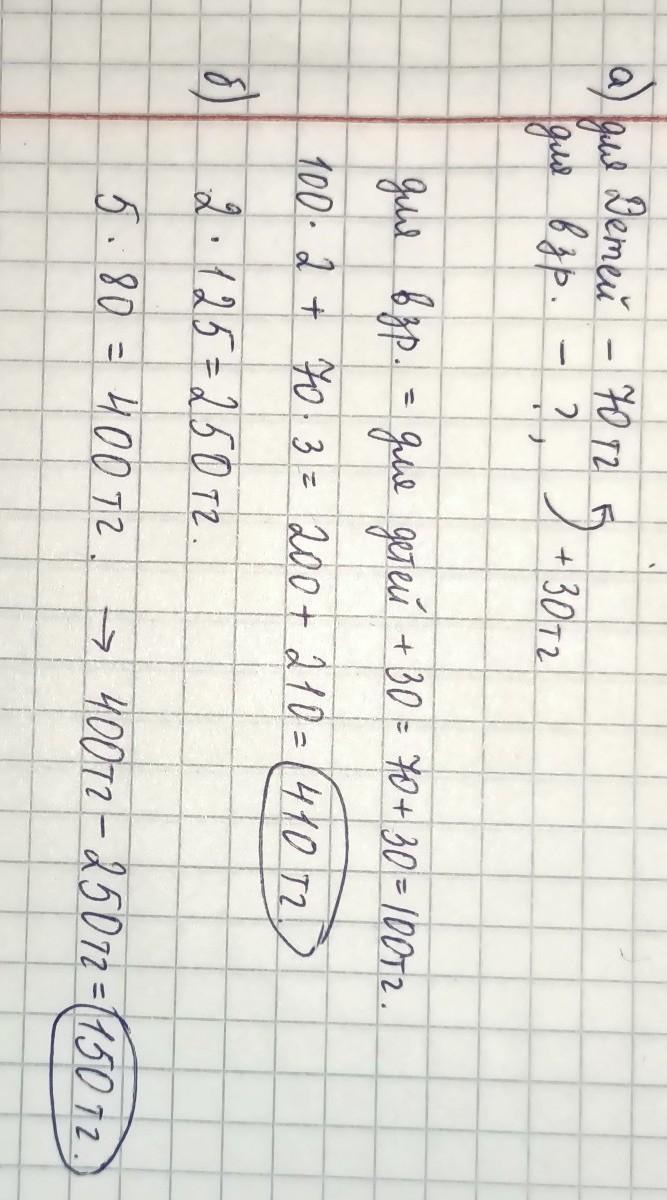 а) для Детей – 70 тг
для взр. – ?, + 30 тг
для взр. = для детей + 30 = 70 + 30 = 100 тг.
100 · 2 + 70 · 3 = 200 + 210 = 410 тг.
б)
2 · 125 = 250 тг.
5 · 80 = 400 тг. → 400 тг – 250 тг = 150 тг.